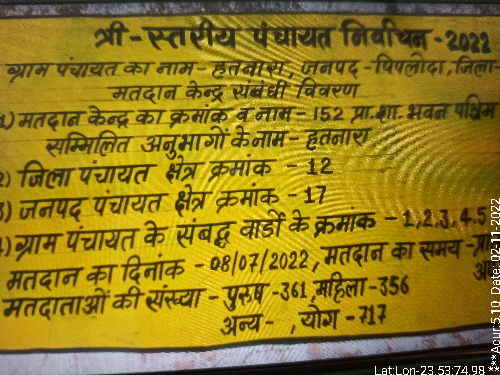 त्री-स्तरीय पंचायत निर्वाचन -2022
ग्राम पंचायत का नाम - हतनारा, जनपद -पिपलोदा, जिला-
मतदान केन्द्र संबंधी विवरण
1) मतदान केन्द्र का क्रमांक व नाम - 152 प्रा.शा. भवन पश्चिम
सम्मिलित अनुभागों के नाम - हतनारा
2) जिला पंचायत क्षेत्र क्रमांक - 12
3) जनपद पंचायत क्षेत्र क्रमांक - 17
4) ग्राम पंचायत के संबद्ध वार्डो के क्रमांक - 1,2,3,4,5
मतदान का दिनांक - 08/07/2022, मतदान का समय -प्रा
मतदाताओं की संख्या - पुरुष -361, महिला -356
अन्य- , योग -717
Lat:Lon-23.53:74.98
***Acur:5.10 Date: 02-11-2022